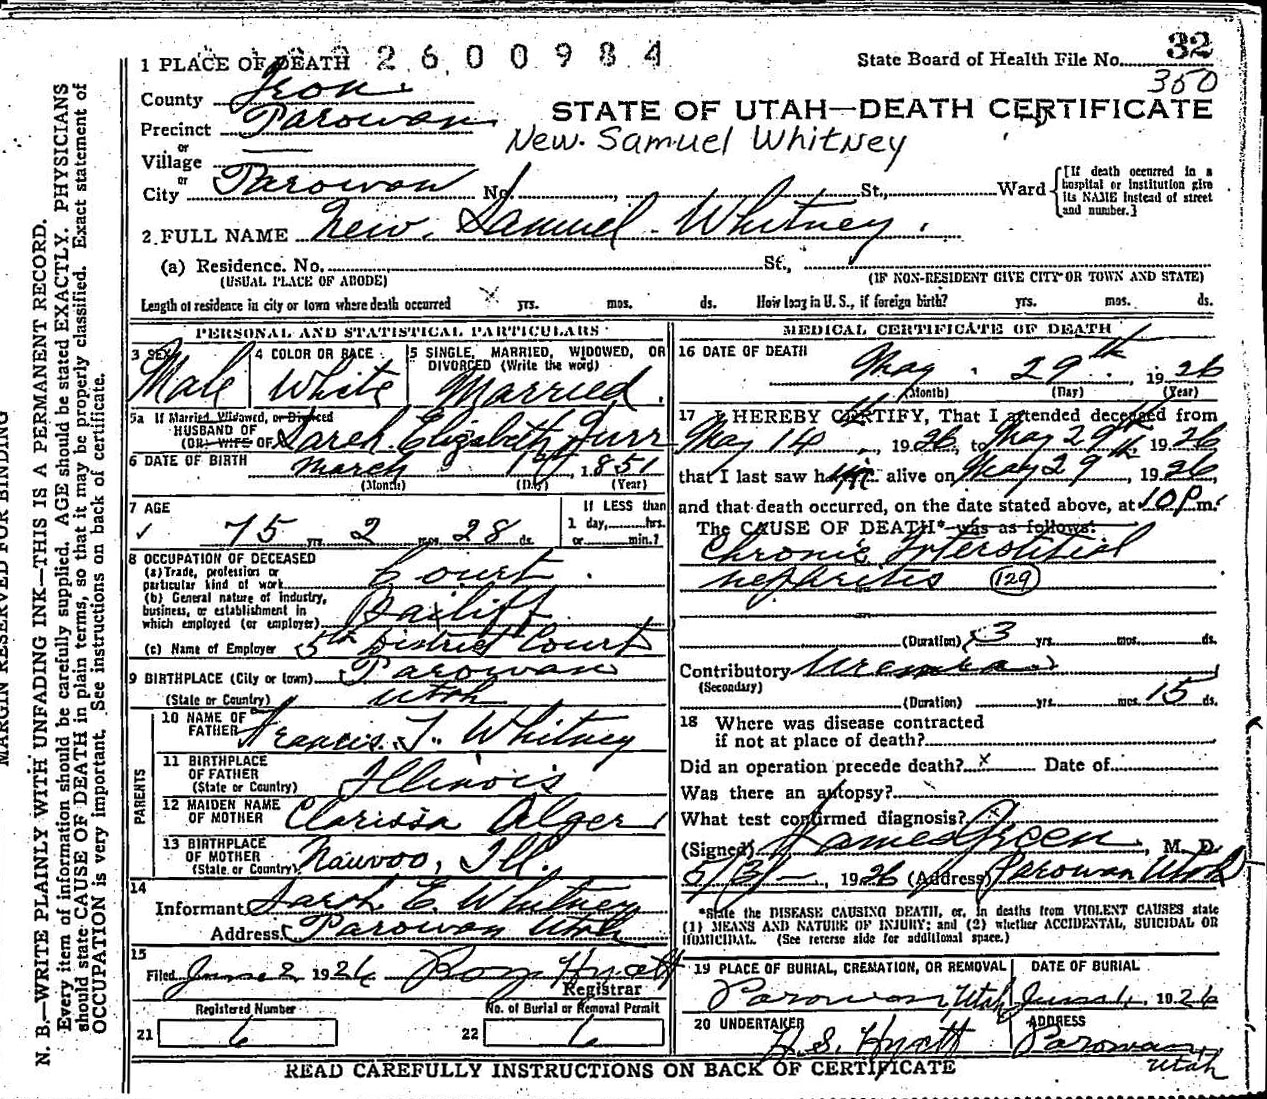 1 PLACE OF DEATH 2600984
State Board of Health File No. 32
350
County Iron
STATE OF UTAH—DEATH CERTIFICATE
Precinct Parowan
or
New. Samuel Whitney
Village
or
City Parowan No. , St., Ward {[If death occurred in a hospital or institution give its NAME instead of street and number.]
2 FULL NAME New. Samuel Whitney.
(a) Residence. No. St.,
(USUAL PLACE OF ABODE) (IF NON-RESIDENT GIVE CITY OR TOWN AND STATE)
Length of residence in city or town where death occurred x yrs. mos. ds. How long in U. S., if foreign birth? yrs. mos. ds.
PERSONAL AND STATISTICAL PARTICULARS
3 SEX
Male
4 COLOR OR RACE
White
5 SINGLE, MARRIED, WIDOWED, OR
DIVORCED (Write the word)
Married.
5a If Married, Widowed, or Divorced
HUSBAND OF
(OR WIFE OF) Sarah Elizabeth Durr
6 DATE OF BIRTH March 1st, 1851
(Month) (Day) (Year)
7 AGE
75 yrs. 2 mos. 28 ds.
If LESS than
1 day, hrs.
or min.?
8 OCCUPATION OF DECEASED
(a) Trade, profession or
particular kind of work Court
(b) General nature of industry,
business, or establishment in
which employed (or employer) Bailiff
(c) Name of Employer 5th District Court
9 BIRTHPLACE (City or town) Parowan
(State or Country) Utah
PARENTS
10 NAME OF
FATHER Francis T. Whitney
11 BIRTHPLACE
OF FATHER
(State or Country) Illinois
12 MAIDEN NAME
OF MOTHER Clarissa Alger
13 BIRTHPLACE
OF MOTHER
(State or Country) Nauvoo, Ill.
14
Informant Sarah E. Whitney
Address Parowan Utah
15
Filed June 2 1926 Roy Hyatt
Registrar
Registered Number No. of Burial or Removal Permit
21 6 22 6
MEDICAL CERTIFICATE OF DEATH
16 DATE OF DEATH
May 29th, 1926
(Month) (Day) (Year)
17 I HEREBY CERTIFY, That I attended deceased from
May 14, 1926, to May 29th, 1926
that I last saw him alive on May 29th, 1926,
and that death occurred, on the date stated above, at 10 P m.
The CAUSE OF DEATH* was as follows:
Chronic Interstitial
nephritis (129)
(Duration) 3 yrs. mos. ds.
Contributory Uremia
(Secondary)
(Duration) yrs. mos. 15 ds.
18 Where was disease contracted
if not at place of death?
Did an operation precede death? x Date of
Was there an autopsy?
What test confirmed diagnosis?
(Signed) James Green, M. D.
5/31, 1926 (Address) Parowan Utah
*State the DISEASE CAUSING DEATH, or, in deaths from VIOLENT CAUSES state
(1) MEANS AND NATURE OF INJURY; and (2) whether ACCIDENTAL, SUICIDAL OR
HOMICIDAL. (See reverse side for additional space.)
19 PLACE OF BURIAL, CREMATION, OR REMOVAL DATE OF BURIAL
Parowan, Utah June 1, 1926
20 UNDERTAKER ADDRESS
H. S. Hyatt Parowan,
Utah
READ CAREFULLY INSTRUCTIONS ON BACK OF CERTIFICATE
MARGIN RESERVED FOR BINDING
N. B.—WRITE PLAINLY WITH UNFADING INK—THIS IS A PERMANENT RECORD.
Every item of information should be carefully supplied. AGE should be stated EXACTLY. PHYSICIANS
should state CAUSE OF DEATH in plain terms, so that it may be properly classified. Exact statement of
OCCUPATION is very important. See instructions on back of certificate.